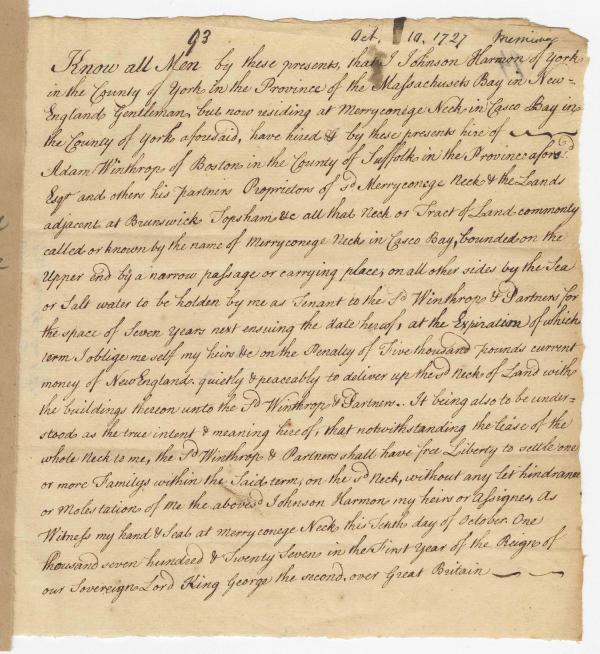 93 Oct. 10. 1727
Know all Men by these presents, that I Johnson Harmon of York
in the County of York in the Province of the Massachusets Bay in New=
England Gentleman, but now residing at Merryconege Neck in Casco Bay in
the County of York aforesaid, have hired & by these presents hire of
Adam Winthrop of Boston in the County of Suffolk in the Province afores.d
Esqr and others his partners Proprietors of s.d Merryconege Neck & the Lands
adjacent at Brunswick Topsham &c all that Neck or Tract of Land commonly
called or known by the name of Merryconege Neck in Casco Bay, bounded on the
Upper end by a narrow passage or carrying place, on all other sides by the Sea
or Salt water to be holden by me as Tenant to the s.d Winthrop & Partners for
the space of Seven Years next ensuing the date hereof, at the Expiration of which
term I oblige me self my heirs &c on the Penalty of Five thousand pounds current
money of New England quietly & peaceably to deliver up the s.d Neck of Land with
the buildings thereon unto the s.d Winthrop & Partners. It being also to be under=
stood as the true intent & meaning hereof, that notwithstanding the lease of the
whole Neck to me, the s.d Winthrop & Partners shall have free Liberty to settle one
or more Familys within the Said term, on the s.d Neck, without any let hindrance
or Molestations of me the aboves.d Johnson Harmon my heirs or Assignes. As
Witness my hand & Seal at Merryconege Neck this Tenth day of October One
thousand seven hundred & Twenty Seven in the First Year of the Reign of
our Sovereign Lord King George the second, over Great Britain